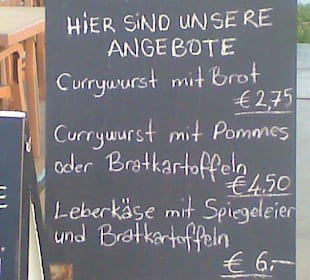 HiER SiND UNSERE
ANGEBOTE
Currywurst mit Brot
€ 2,75
Currywurst mit Pommes
oder Bratkartoffeln
€ 4,50
Leberkäse mit Spiegeleier
und Bratkartoffeln
€ 6,-